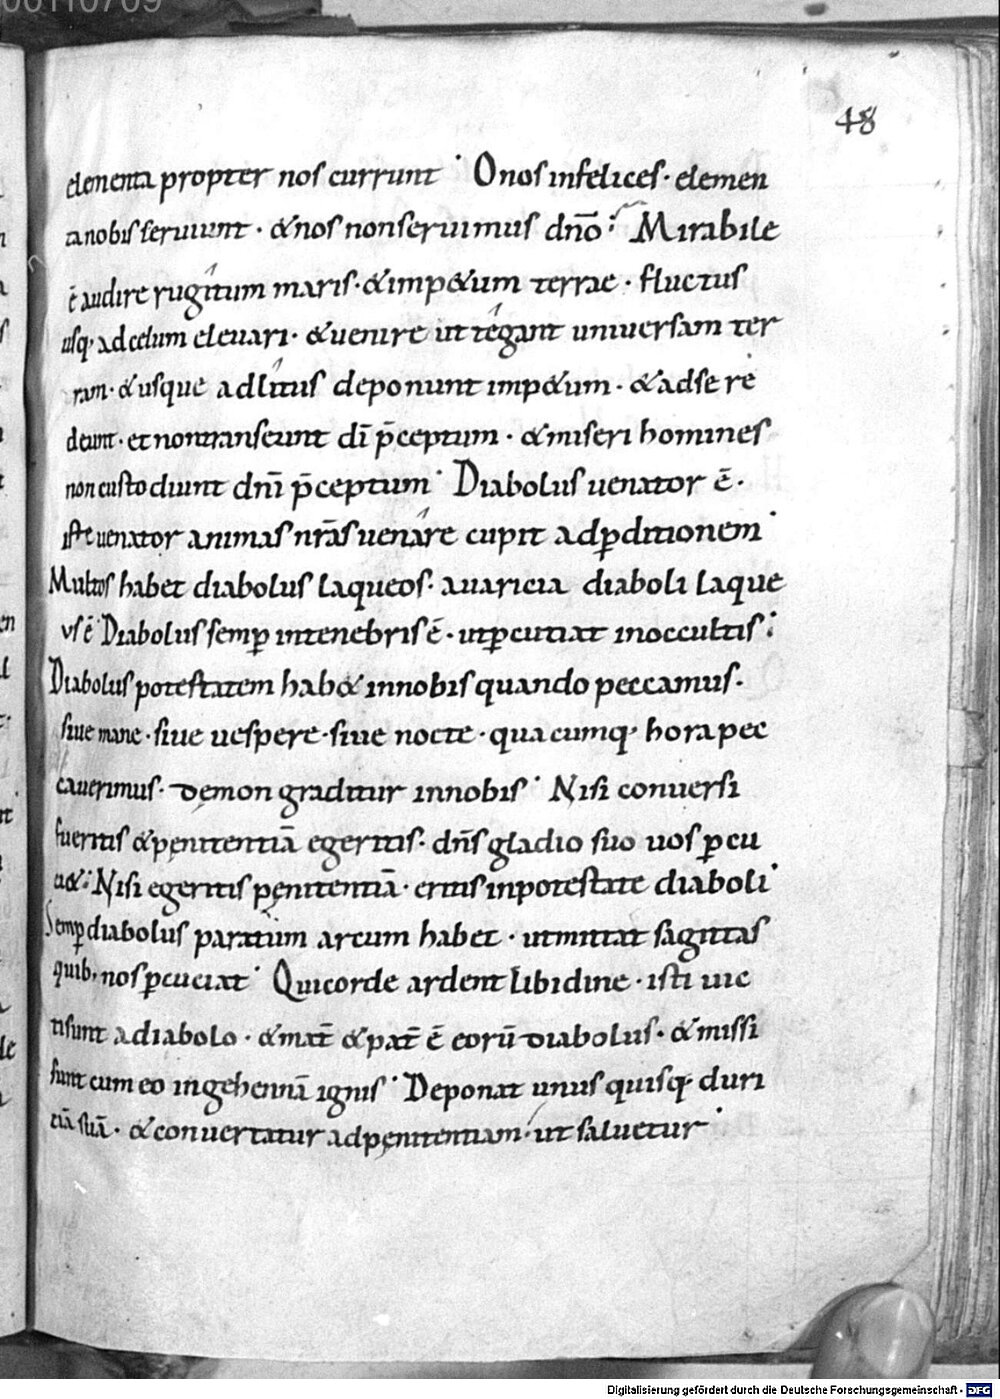 00110709
48
elementa propter nos currunt· O nos infelices· elemen
ta nobis seruiunt· & nos non seruimus dn̄o· Mirabile
ē audire rugitum maris· & imp&um terrae· fluctus
usq; ad celum eleuari· & uenire ut tegant uniuersam ter
ram· & usque ad litus deponunt imp&um· & ad se re
deunt· et non transeunt dī p̄ceptum· & miseri homines
non custodiunt dn̄i p̄ceptum· Diabolus uenator ē·
iste uenator animas nr̄as uenare cupit ad ꝑditionem·
Multos habet diabolus laqueos· auaricia diaboli laque
us ē· Diabolus semꝑ in tenebris ē· ut ꝑcutiat in occultis·
Diabolus potestatem hab& in nobis quando peccamus·
siue mane· siue uespere· siue nocte· qua cumq; hora pec
cauerimus· demon graditur in nobis· Nisi conuersi
fueritis & penitentiā egeritis· dn̄s gladio suo uos ꝑcu
ci&· Nisi egeritis penitentiā· eritis in potestate diaboli·
Semꝑ diabolus paratum arcum habet· ut mittat sagittas
quib; nos ꝑcuciat· Qui corde ardent libidine· isti uic
ti sunt a diabolo· & mat̄ & pat̄ ē eorū diabolus· & missi
sunt cum eo in gehennā ignis· Deponat unus quisq; duri
ciā suā· & conuertatur ad penitentiam· ut saluetur·
Digitalisierung gefördert durch die Deutsche Forschungsgemeinschaft - DFG